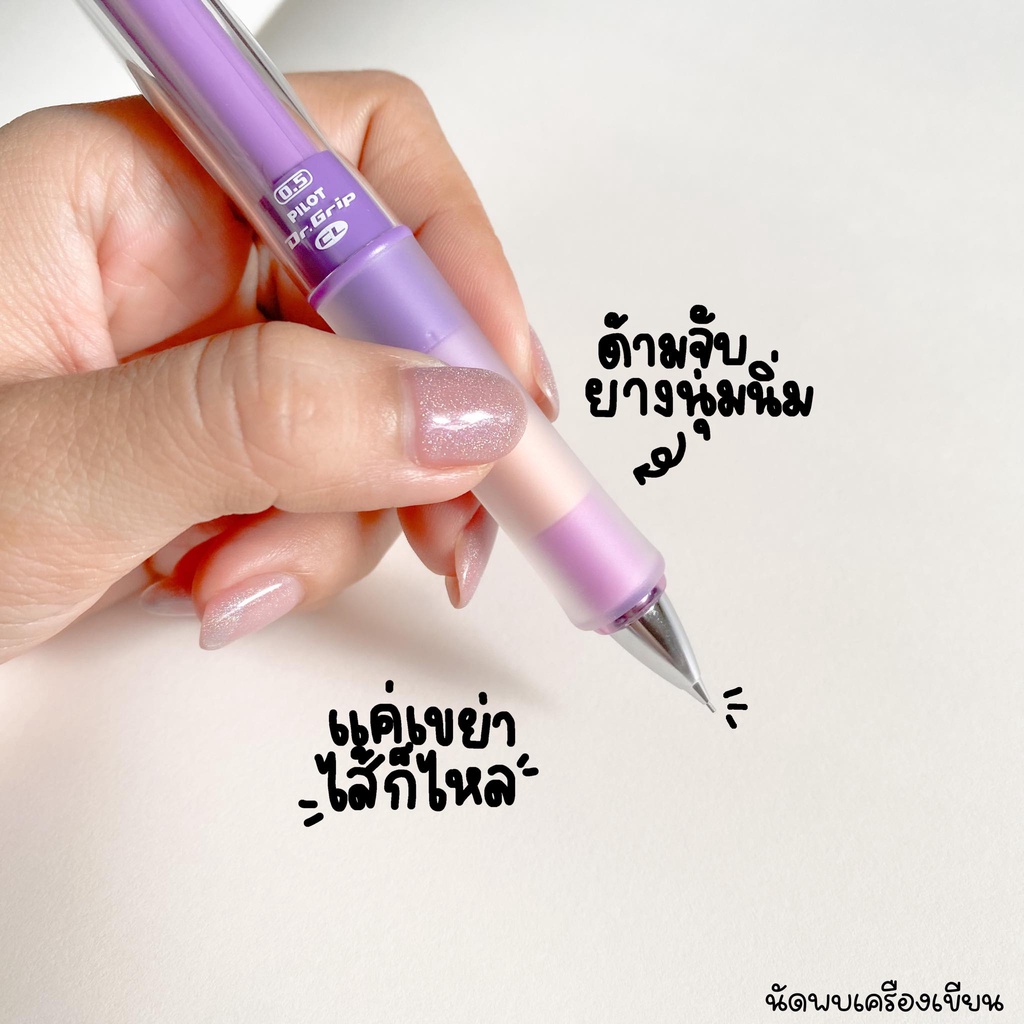 0.5
PILOT
Dr.Grip
CL
ด้ามจับ
ยางนุ่มนิ่ม
แค่เขย่า
ไส้ก็ไหล
นัดพบเครื่องเขียน